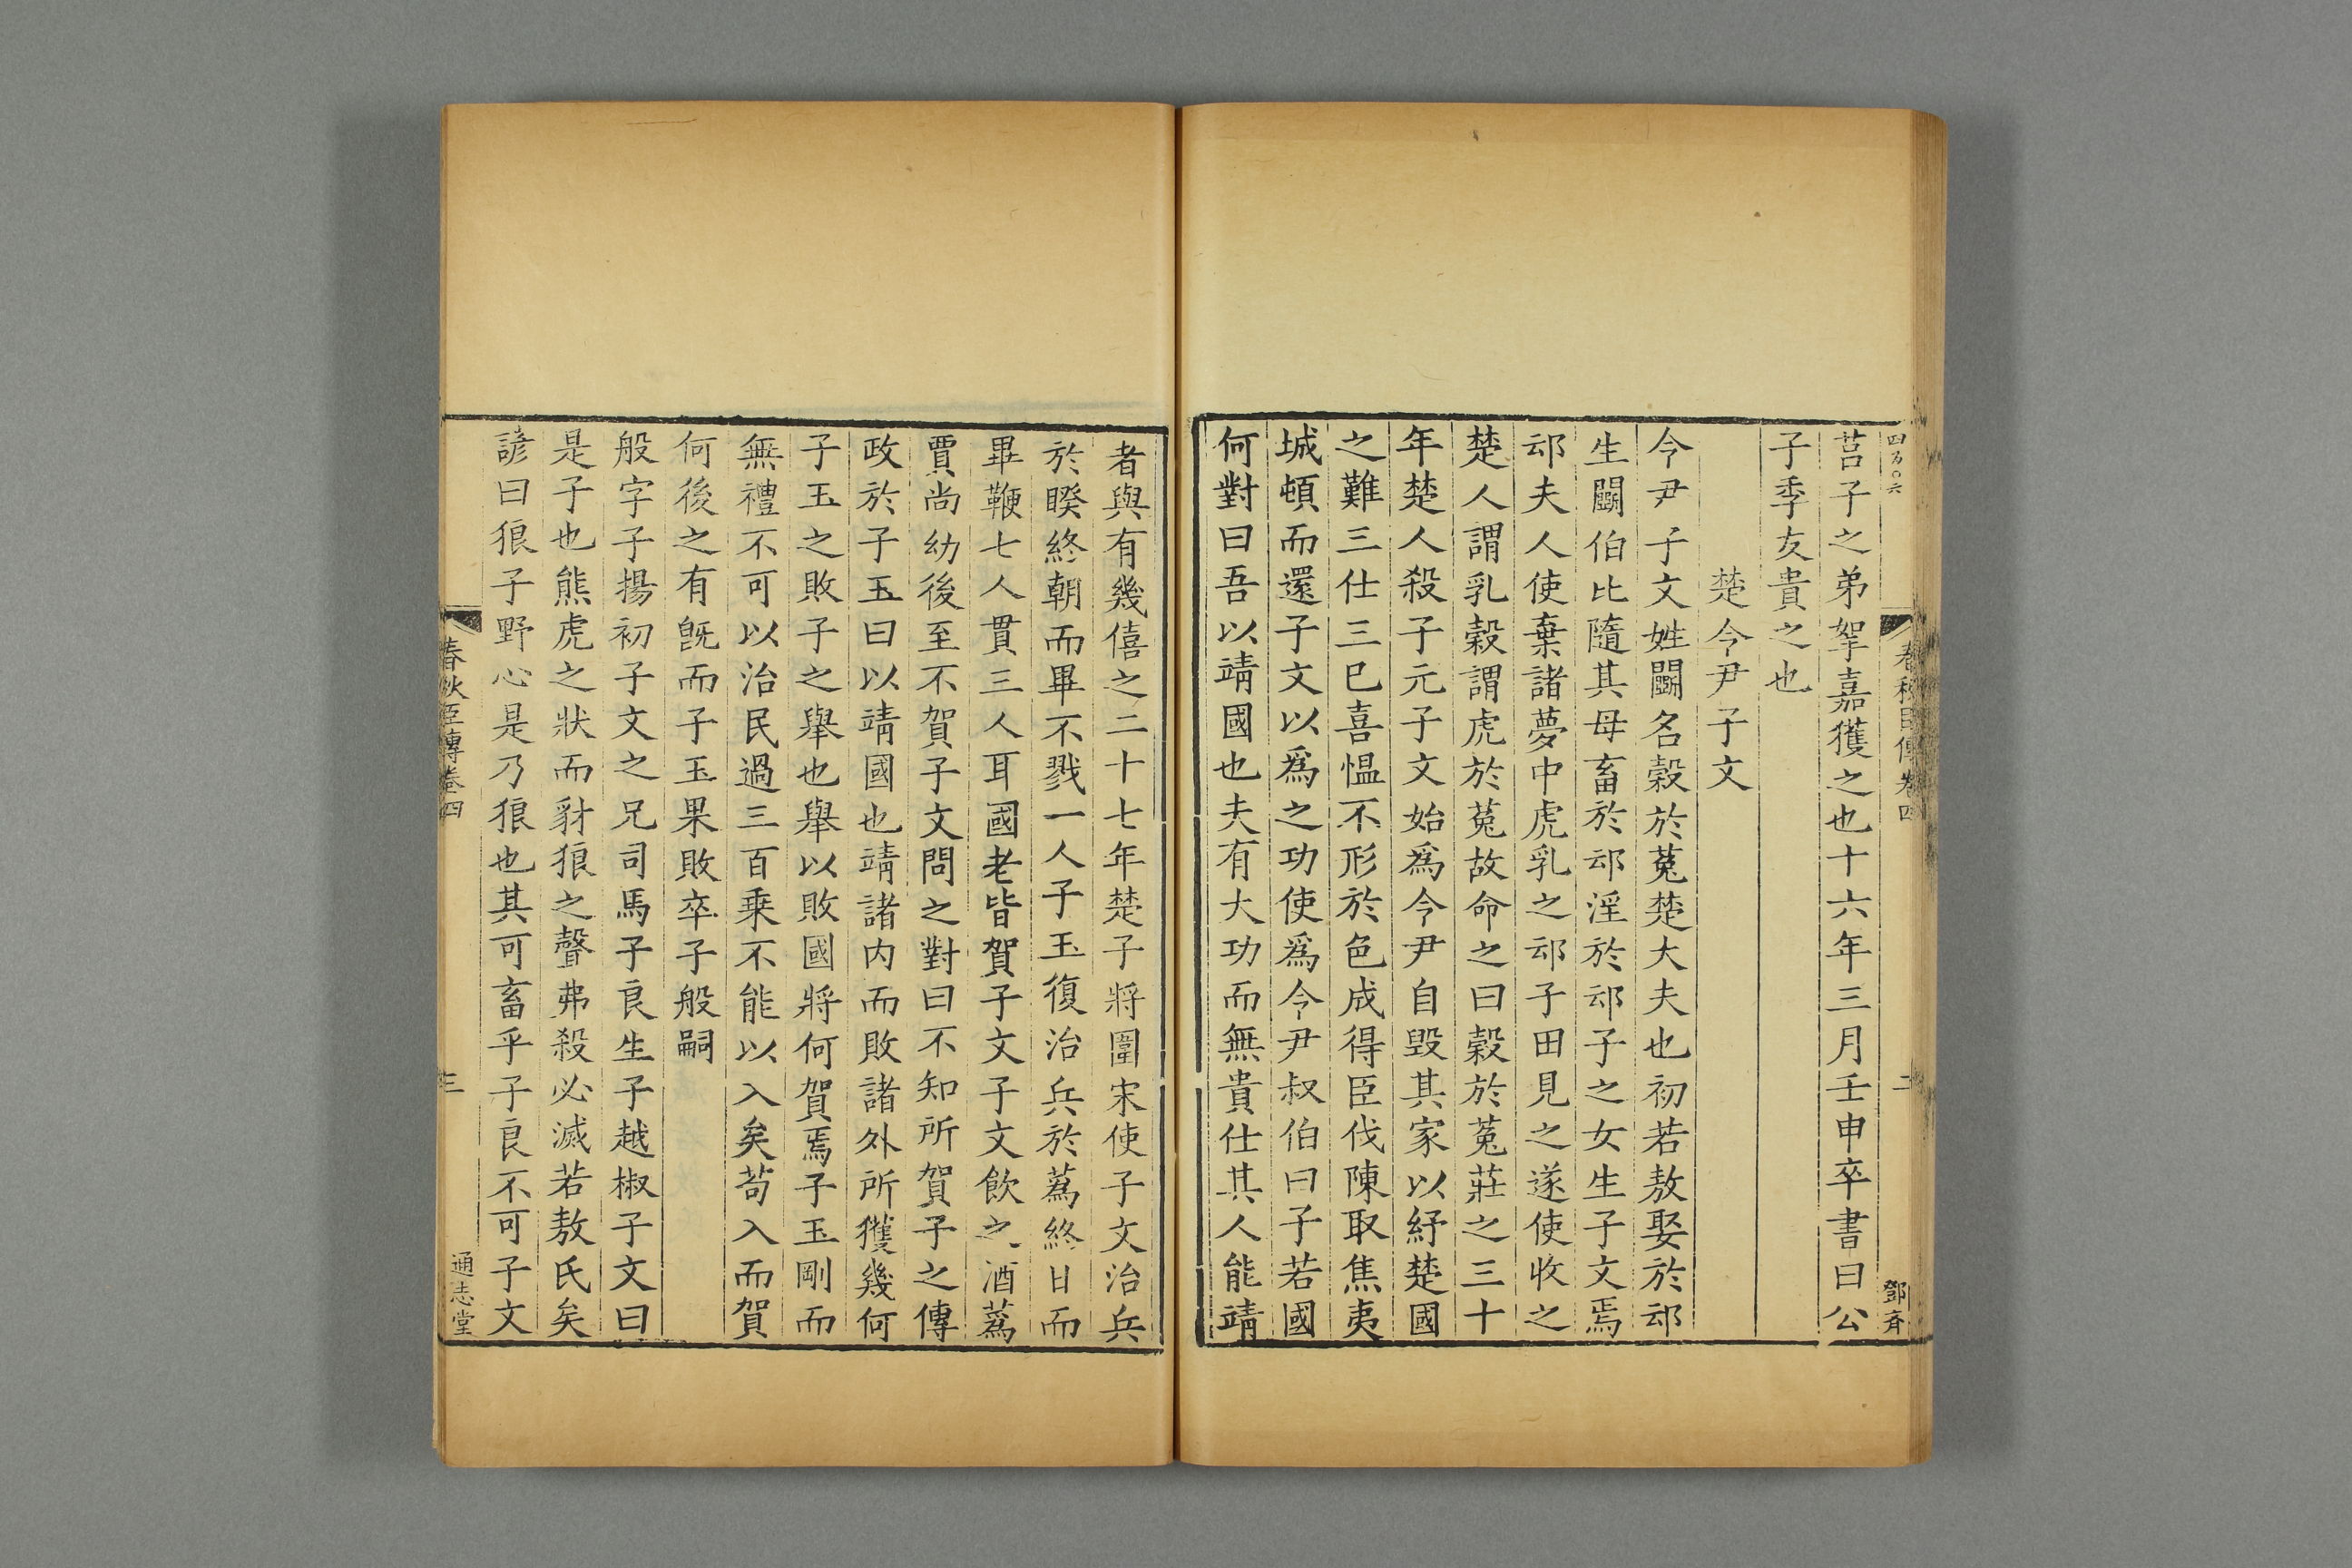 四百〇六
春秋臣傳卷四
二
鄧齊
莒子之弟挐嘉獲之也十六年三月壬申卒書曰公
子季友貴之也
楚令尹子文
令尹子文姓鬭名穀於菟楚大夫也初若敖娶於䢵
生鬭伯比隨其母畜於䢵淫於䢵子之女生子文焉
䢵夫人使棄諸夢中虎乳之䢵子田見之遂使收之
楚人謂乳穀謂虎於菟故命之曰穀於菟莊之三十
年楚人殺子元子文始爲令尹自毀其家以紓楚國
之難三仕三已喜愠不形於色成得臣伐陳取焦夷
城頓而還子文以爲之功使爲令尹叔伯曰子若國
何對曰吾以靖國也夫有大功而無貴仕其人能靖
者與有幾僖之二十七年楚子將圍宋使子文治兵
於睽終朝而畢不戮一人子玉復治兵於蒍終日而
畢鞭七人貫三人耳國老皆賀子文子文飲之酒蒍
賈尚幼後至不賀子文問之對曰不知所賀子之傳
政於子玉曰以靖國也靖諸内而敗諸外所獲幾何
子玉之敗子之舉也舉以敗國將何賀焉子玉剛而
無禮不可以治民過三百乗不能以入矣苟入而賀
何後之有旣而子玉果敗卒子般嗣
般字子揚初子文之兄司馬子良生子越椒子文曰
是子也熊虎之狀而豺狼之聲弗殺必滅若敖氏矣
諺曰狼子野心是乃狼也其可畜乎子良不可子文
春秋臣傳卷四
三
通志堂